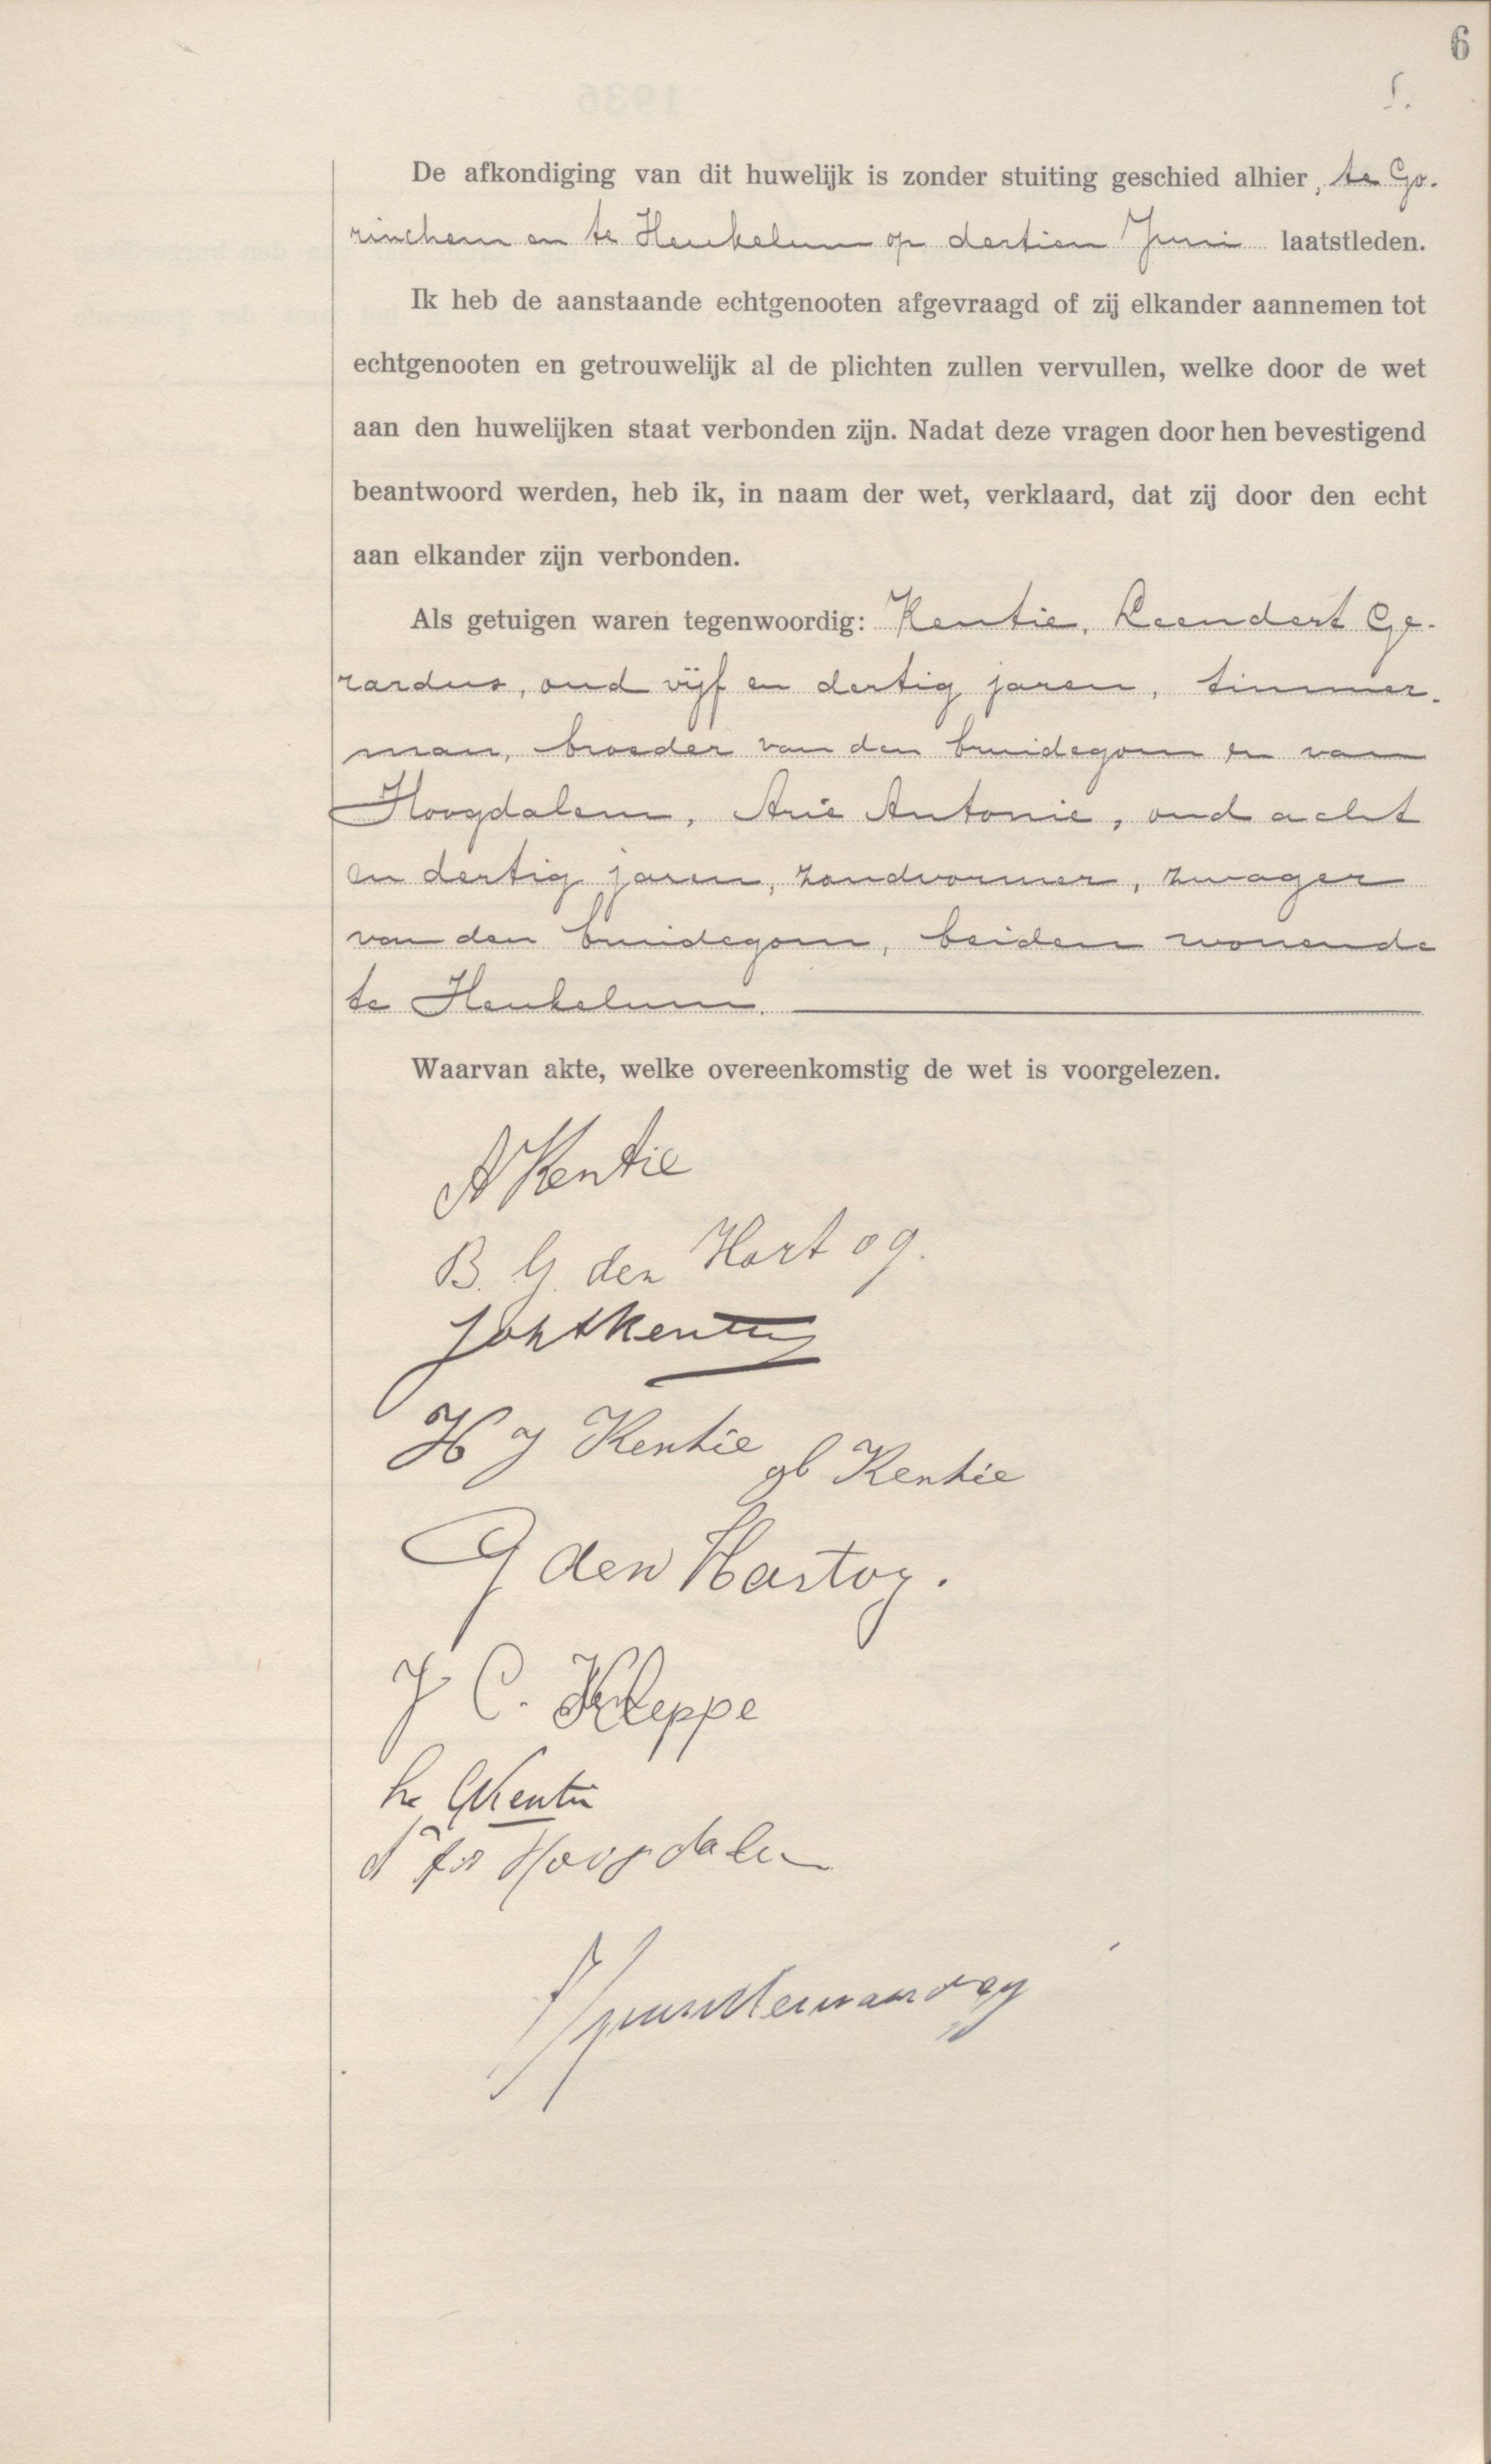 6
De afkondiging van dit huwelijk is zonder stuiting geschied alhier, te Go-
rinchem en te Heukelum op dertien Juni laatstleden.
Ik heb de aanstaande echtgenooten afgevraagd of zij elkander aannemen tot
echtgenooten en getrouwelijk al de plichten zullen vervullen, welke door de wet
aan den huwelijken staat verbonden zijn. Nadat deze vragen door hen bevestigend
beantwoord werden, heb ik, in naam der wet, verklaard, dat zij door den echt
aan elkander zijn verbonden.
Als getuigen waren tegenwoordig: Kentie, Leendert Ge-
rardus, oud vijf en dertig jaren, timmer-
man, broeder van den bruidegom en van
Hoogdalem, Arie Antonie, oud acht
en dertig jaren, zandvormer, zwager
van den bruidegom, beiden wonende
te Heukelum.
Waarvan akte, welke overeenkomstig de wet is voorgelezen.
A Kentie
B. G. den Hartog.
Kentie
H J Kentie
Kentie
G den Hartog.
J C. Kleppe
Kentie
Hoogdalem